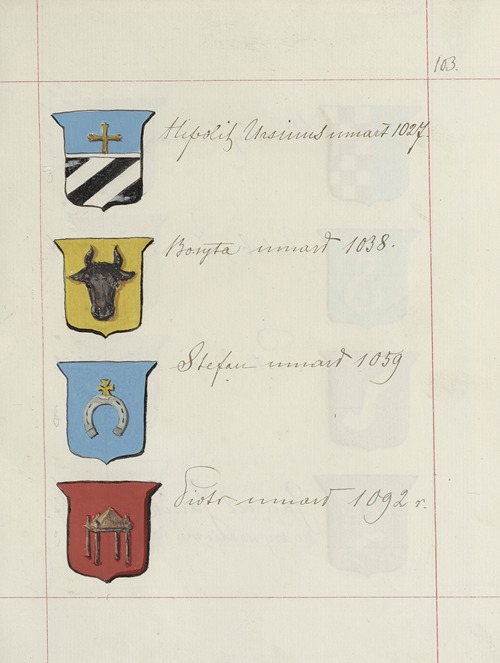 103.
Hipolit Ursinus umarł 1027
Bossuta umarł 1038.
Stefan umarł 1059
Piotr umarł 1092 r.